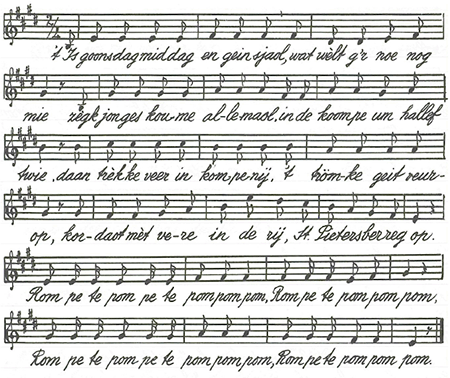 't Is goonsdagmiddag en gein sjaol, wat wèlt g'r noe nog
mie zègk jonges kou-me al-le-maol, in de koompe um hallef
twie, daan trèkke veer in kom-pe-nij, 't tröm-ke geit veur-
op, kon-daot mèt ve-re in de rij, St. Pietersberreg op.
Rom pe te pom pe te pom pom pom, Rom pe te pom pom pom,
Rom pe te pom pe te pom pom pom, Rom pe te pom pom pom.